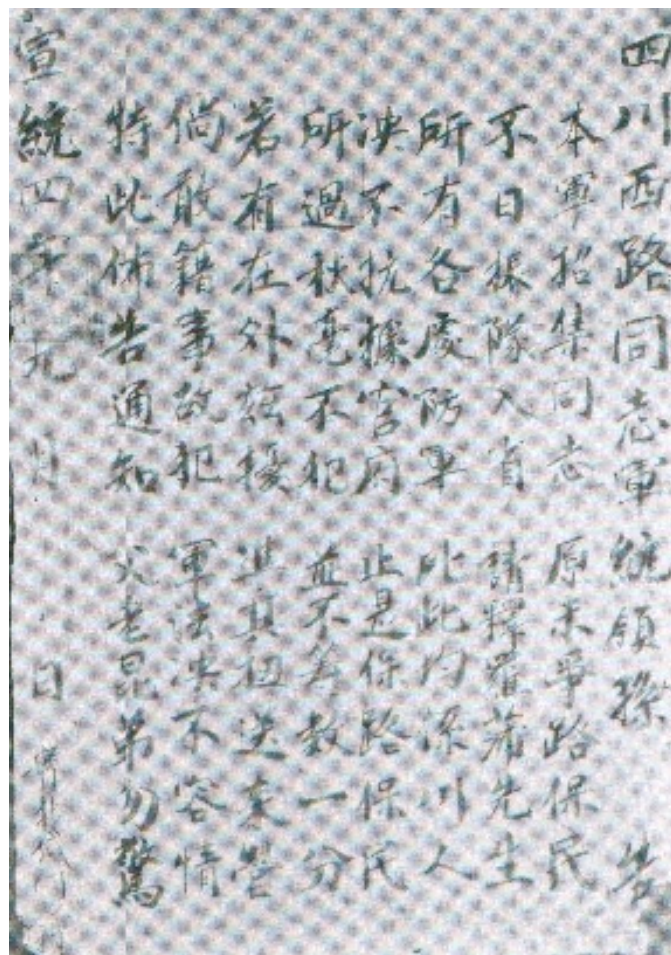 四川西路同志軍統領孫 告
本軍招集同志 原来爭路保民
不日振隊入省 請釋羅蒲先生
所有各處防軍 比此均深川人
决不抗據官府 止是保路保民
所過秋毫不犯 並不籌教一分
若有在外 擾 準其扭送来營
倘敢籍事故犯 軍法决不容情
特此佈告通知 父老昆弟勿驚
宣統四年九月 日